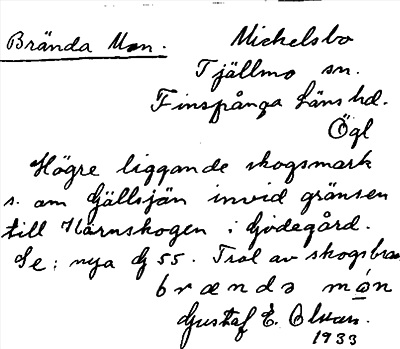 Brända Mon. Mickelsbo
Tjällmo sn.
Finspånga läns hd.
Ögl
Högre liggande skogsmark
s. om Gällsjön invid gränsen
till Kärnskogen i Godegård.
Se: nya G 55. Trol av skogsbran
brændə mo̱n
Gustaf E. Olsson.
1933